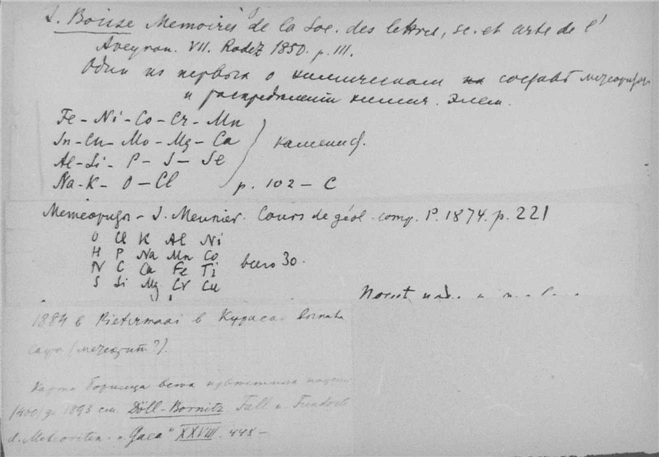 J. Boisse Memoires de la Soc. des lettres, sc. et arts de l'
Aveyron. VII. Rodez 1850. p. III.
Один из первых о химическом на составѣ метеоритов
и распределении химич. элем.
Fe - Ni - Co - Cr - Mn
Sn - Cu - Mo - Mg - Ca
Al - Si - P - S - Se
Na - K - O - Cl
каменид.
p. 102 - C
Метеориты - S. Meunier. Cours de géol. comp. P. 1874. p. 221
O Cl K Al Ni
H P Na Mn Co
N C Ca Fe Ti
S Si Mg Cr Cu
всего 30.
1884 в Pietermaai в Кураса
(метеорит?).
Карта
1400 до 1893 см. Döll-Bornitz Fall u. Fundort
d. Meteoriten. "Gaea" XXVIII. 448 -